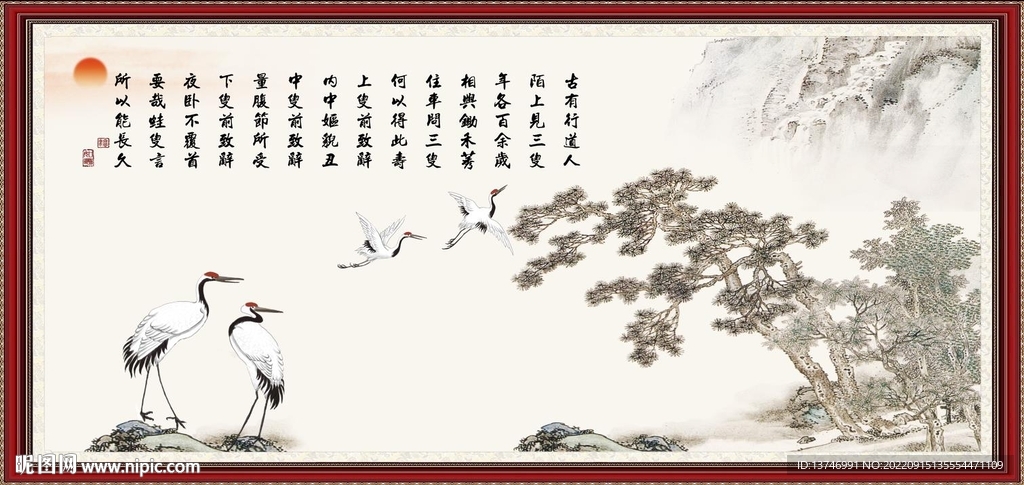 古有行道人
陌上見三叟
年各百余歲
相與鋤禾莠
住車問三叟
何以得此壽
上叟前致辭
内中嫗貌丑
中叟前致辭
量腹節所受
下叟前致辭
夜卧不覆首
要哉蛙叟言
所以能長久
昵图网 www.nipic.com
ID:13746991 NO:20220915135554471109